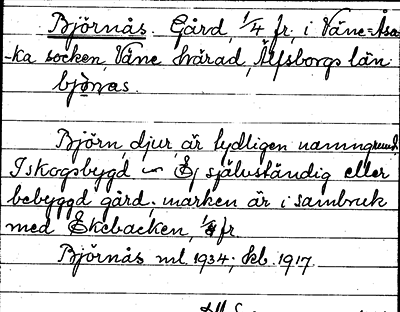 Björnås. Gård, 1/4 fr. i Väne-Åsa-
-ka socken, Väne härad, Älfsborgs län
bjö̀rnas.
Björn, djur, är tydligen namngrund.
I skogsbygd – Ej självständig eller
bebyggd gård; marken är i sambruk
med Ekebacken, 1/4 fr.
Björnås ml. 1934; kb. 1917.